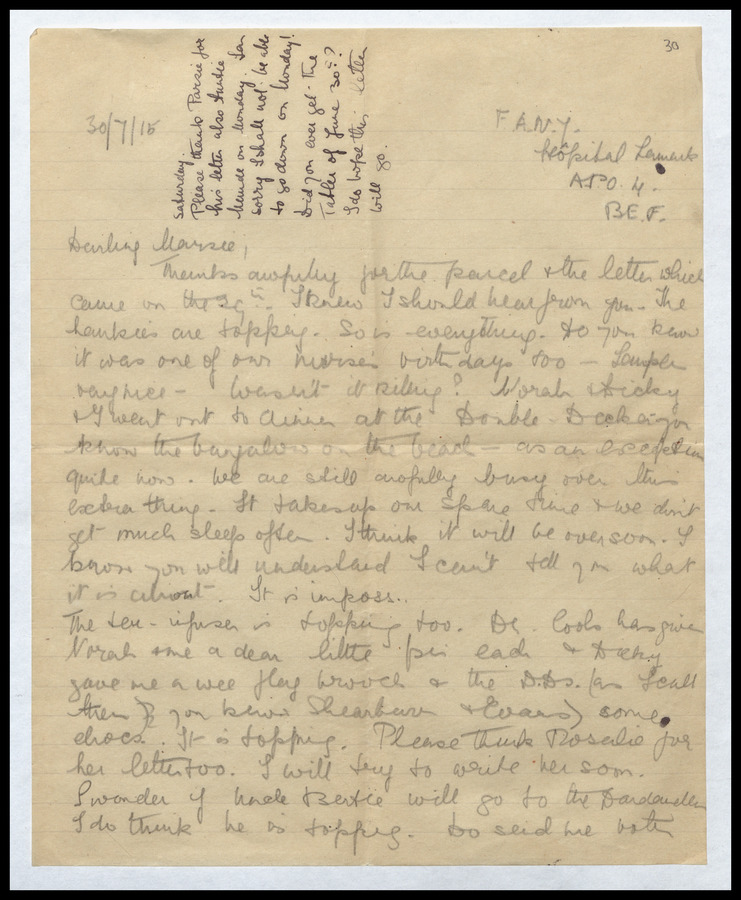 30
30/7/15
F.A.N.Y.
Hospital Lamark
A.P.O. 4.
B.E.F.
Saturday.
Please thank Parsie for
his letter also Auntie
Maude on Monday. Am
sorry I shall not be able
to go down on Monday!
Did you ever get the
Tatler of June 30th?
I do hope this letter
will go.
Darling Marsie,
Thanks awfully for the parcel & the letter which
came on the 29th. I knew I should hear from you. The
hankies are topping. So is everything. Do you know
it was one of our nurses birthdays too —
very nice — Wasn't it killing? Norah & Dicky
& I went out to dinner at the Double-Decker you
know the bungalow on the beach — as an exception
quite now. We are still awfully busy over this
extra thing. It takes up our spare time & we don't
get much sleep often. I think it will be over soon. I
know you will understand I can't tell you what
it is about. It is imposs..
The tea-infuser is topping too. Dr. Cools has given
Norah & me a dear little pin each & Dicky
gave me a wee flag brooch & the D.Ds. (as I call
them) you know & Evans) some
chocs. It is topping. Please thank Rosalie for
her letter too. I will try to write her soon.
I wonder if Uncle Bertie will go to the Dardanelles
I do think he is topping. Do send me both